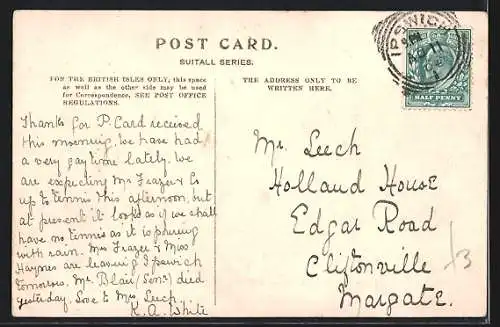 POST CARD.
SUITALL SERIES.
FOR THE BRITISH ISLES ONLY, this space
as well as the other side may be used
for Correspondence, SEE POST OFFICE
REGULATIONS.
THE ADDRESS ONLY TO BE
WRITTEN HERE.
IPSWICH
HALF PENNY
Thanks for P. Card received
this morning. We have had
a very gay time lately. We
are expecting Mr Frazer & Co
up to tennis this afternoon, but
at present it looks as if we shall
have no tennis as it is pouring
with rain. Mrs Frazer & Miss
Haynes are leaving Ipswich
tomorrow. Mr Blair (Senr) died
yesterday. Love to Mrs Leech.
K. A. White
Mr. Leech
Holland House
Edgar Road
Cliftonville
Margate.